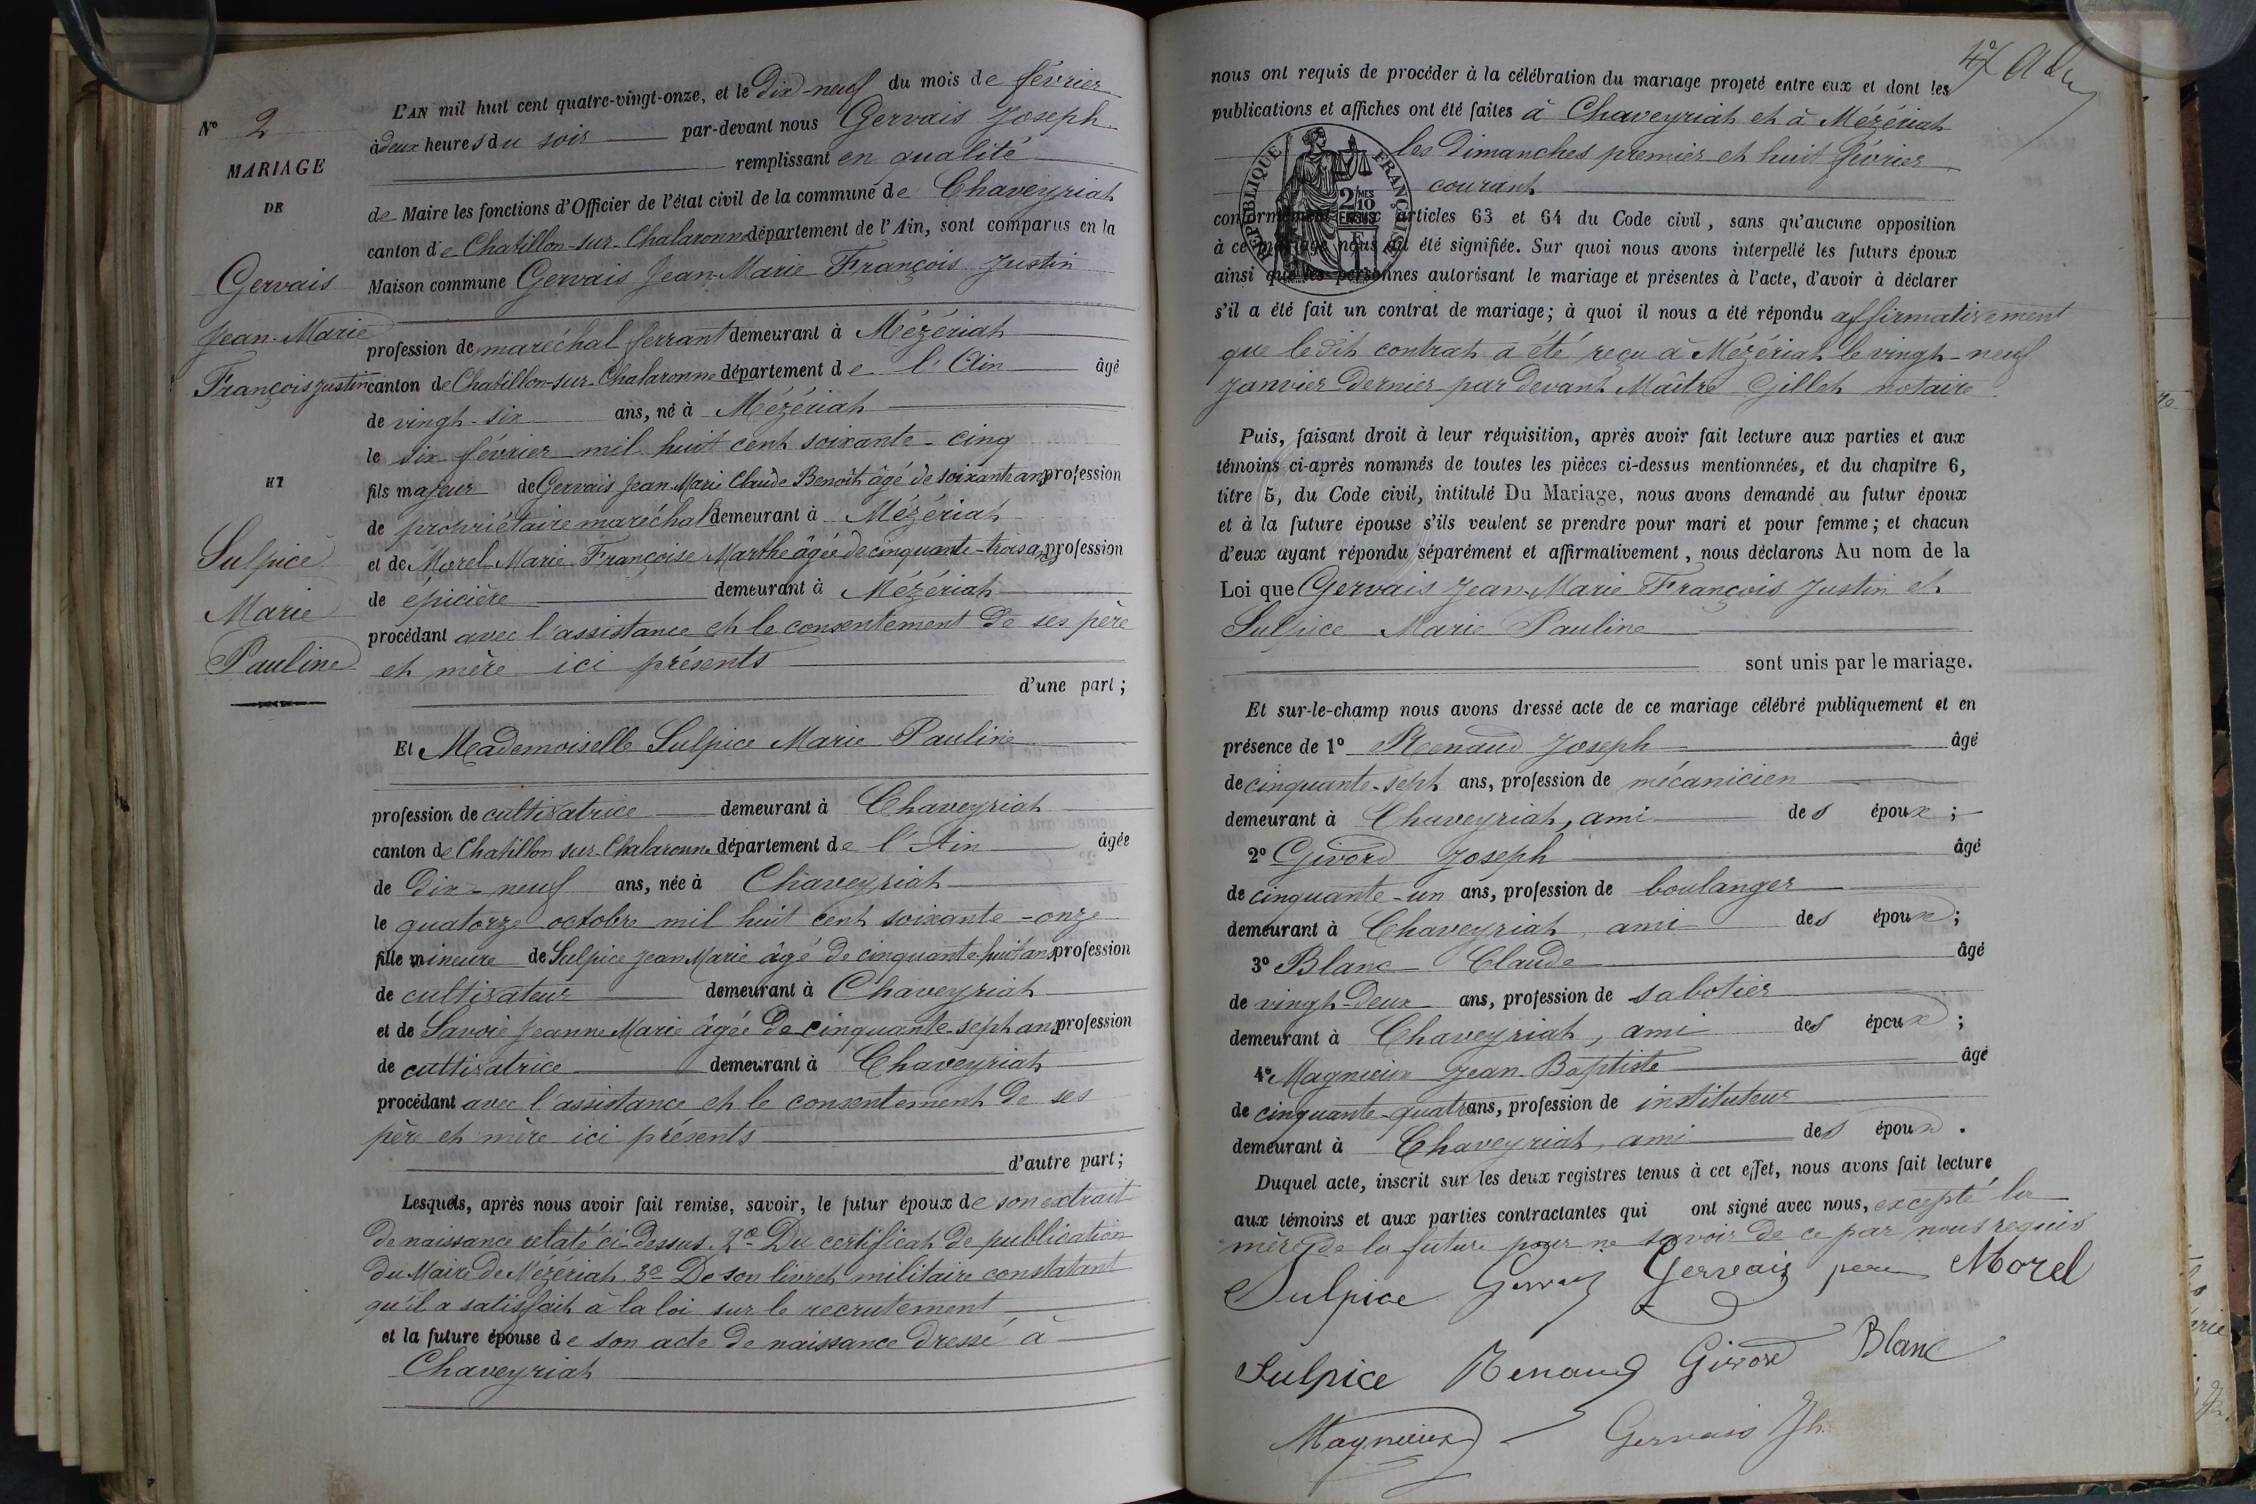 N° 2
MARIAGE
DE
Gervais
Jean-Marie
François Justin
ET
Sulpice
Marie
Pauline
L'AN mil huit cent quatre-vingt-onze, et le Dix-neuf du mois de février
à deux heures du soir par-devant nous Gervais Joseph
remplissant en qualité
de Maire les fonctions d'Officier de l'état civil de la commune de Chaveyriat
canton de Chatillon-sur-Chalaronne département de l'Ain, sont comparus en la
Maison commune Gervais Jean-Marie François Justin
profession de maréchal ferrant demeurant à Mézériat
canton de Chatillon-sur-Chalaronne département de l'Ain âgé
de vingt-six ans, né à Mézériat
le six février mil huit cent soixante-cinq
fils majeur de Gervais Jean-Marie Claude Benoît âgé de soixante ans profession
de propriétaire maréchal demeurant à Mézériat
et de Morel Marie Françoise Marthe âgée de cinquante-trois ans profession
de épicière demeurant à Mézériat
procédant avec l'assistance et le consentement de ses père
et mère ici présents
d'une part;
Et Mademoiselle Sulpice Marie Pauline
profession de cultivatrice demeurant à Chaveyriat
canton de Chatillon sur-Chalaronne département de l'Ain âgée
de dix-neuf ans, née à Chaveyriat
le quatorze octobre mil huit cent soixante-onze
fille mineure de Sulpice Jean Marie âgé de cinquante-huit ans profession
de cultivateur demeurant à Chaveyriat
et de Savoie Jeanne Marie âgée de cinquante-sept ans profession
de cultivatrice demeurant à Chaveyriat
procédant avec l'assistance et le consentement de ses
père et mère ici présents
d'autre part;
Lesquels, après nous avoir fait remise, savoir, le futur époux de son extrait
de naissance relaté ci-dessus. 2° Du certificat de publication
du Maire de Mézériat. 3° De son livret militaire constatant
qu'il a satisfait à la loi sur le recrutement
et la future épouse de son acte de naissance dressé à
Chaveyriat
nous ont requis de procéder à la célébration du mariage projeté entre eux et dont les
publications et affiches ont été faites à Chaveyriat et à Mézériat
les dimanches premier et huit février
courant
RÉPUBLIQUE FRANÇAISE
2/10 MES
EN SUS
conformément aux articles 63 et 64 du Code civil, sans qu'aucune opposition
à ce mariage nous ait été signifiée. Sur quoi nous avons interpellé les futurs époux
ainsi que les personnes autorisant le mariage et présentes à l'acte, d'avoir à déclarer
s'il a été fait un contrat de mariage; à quoi il nous a été répondu affirmativement
que le dit contrat a été reçu à Mézériat le vingt-neuf
janvier dernier par devant Maître Gillet notaire
Puis, faisant droit à leur réquisition, après avoir fait lecture aux parties et aux
témoins ci-après nommés de toutes les pièces ci-dessus mentionnées, et du chapitre 6,
titre 5, du Code civil, intitulé Du Mariage, nous avons demandé au futur époux
et à la future épouse s'ils veulent se prendre pour mari et pour femme; et chacun
d'eux ayant répondu séparément et affirmativement, nous déclarons Au nom de la
Loi que Gervais Jean-Marie François Justin et
Sulpice Marie Pauline
sont unis par le mariage.
Et sur-le-champ nous avons dressé acte de ce mariage célébré publiquement et en
présence de 1° Renaud Joseph âgé
de cinquante-sept ans, profession de mécanicien
demeurant à Chaveyriat, ami des époux;
2° Givord Joseph âgé
de cinquante-un ans, profession de boulanger
demeurant à Chaveyriat, ami des époux;
3° Blanc Claude âgé
de vingt-deux ans, profession de sabotier
demeurant à Chaveyriat, ami des époux;
4° Magnieux Jean-Baptiste âgé
de cinquante-quatre ans, profession de instituteur
demeurant à Chaveyriat, ami des époux.
Duquel acte, inscrit sur les deux registres tenus à cet effet, nous avons fait lecture
aux témoins et aux parties contractantes qui ont signé avec nous, excepté la
mère de la future pour ne savoir de ce par nous requis
Sulpice Gervais Gervais père Morel
Sulpice Renaud Givord Blanc
Magnieux Gervais Jh.